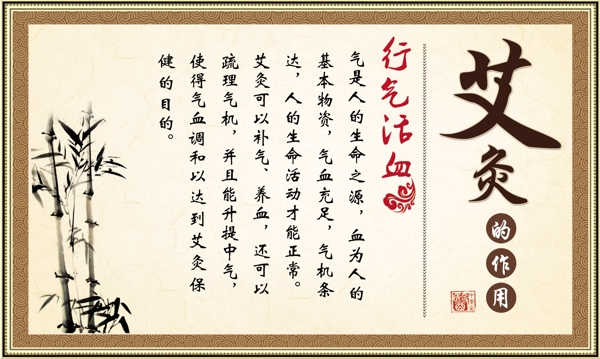 艾灸
的作用
行气活血
气是人的生命之源，血为人的
基本物资，气血充足，气机条
达，人的生命活动才能正常。
艾灸可以补气、养血，还可以
疏理气机，并且能升提中气，
使得气血调和以达到艾灸保
健的目的。